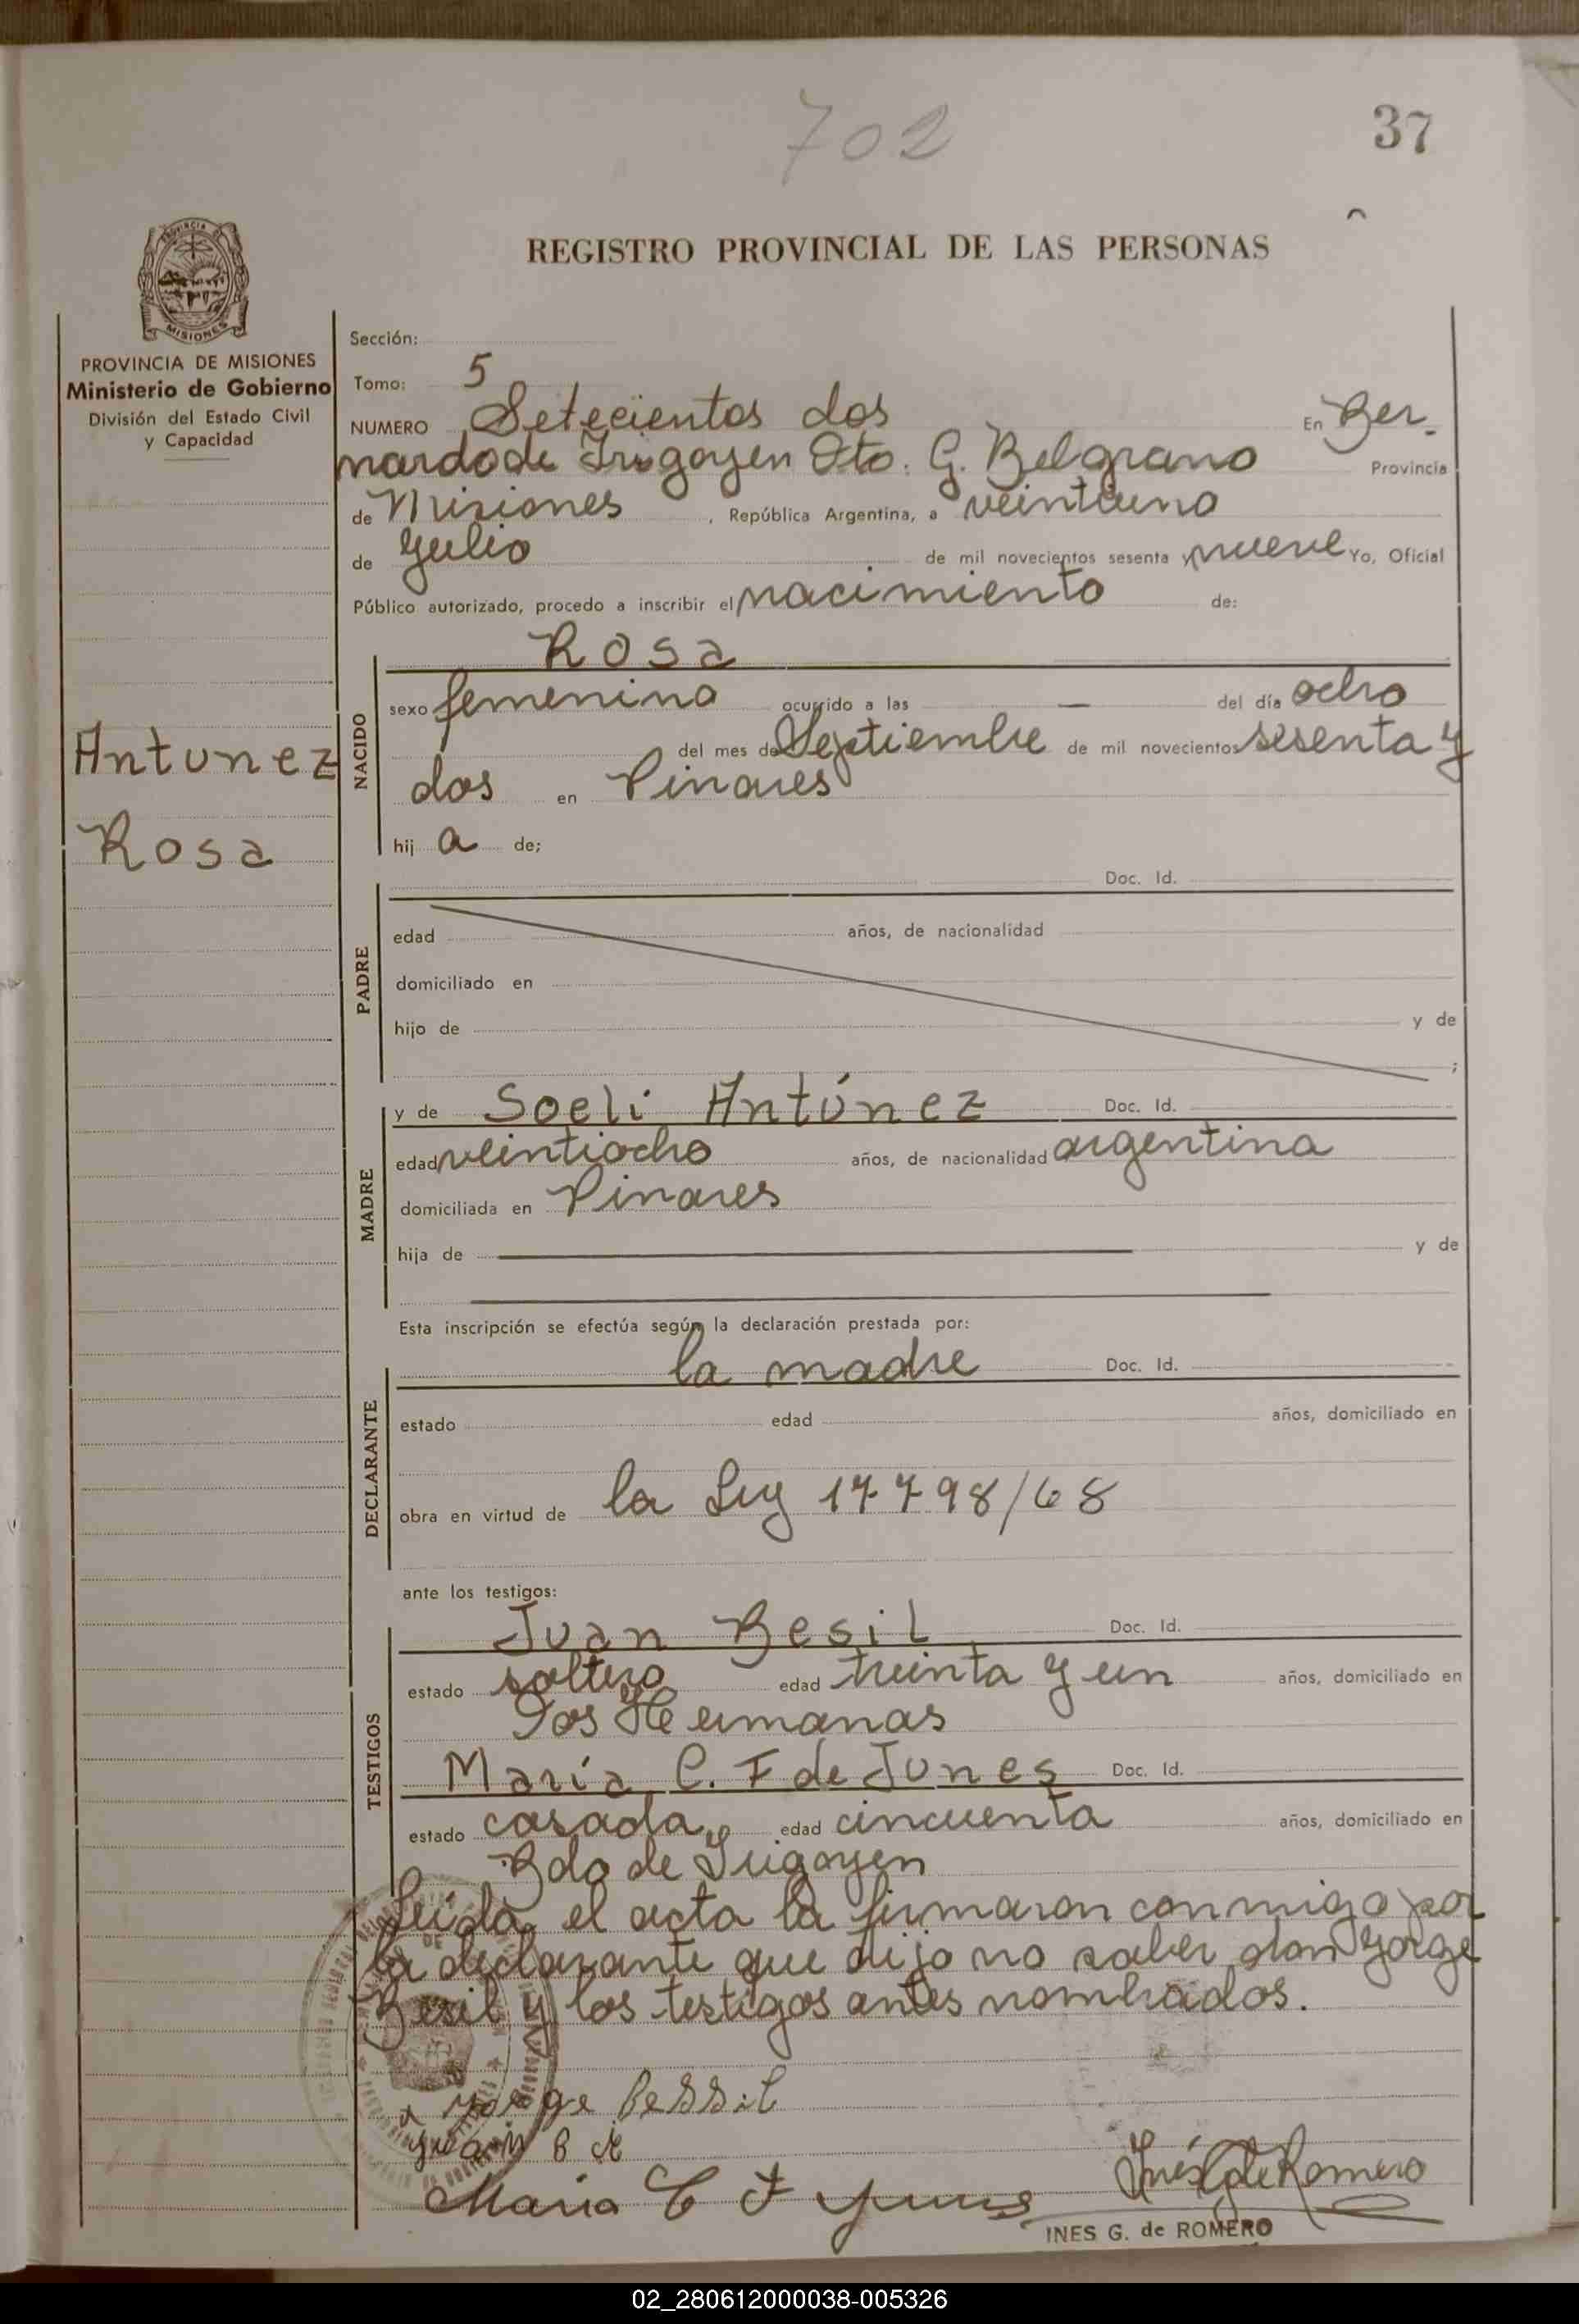 702
37
REGISTRO PROVINCIAL DE LAS PERSONAS
PROVINCIA DE
MISIONES
PROVINCIA DE MISIONES
Ministerio de Gobierno
División del Estado Civil
y Capacidad
Antunez
Rosa
Sección:
Tomo: 5
NUMERO Setecientos dos En Ber-
nardo de Irigoyen Dto. G. Belgrano Provincia
de Misiones , República Argentina, a veintiuno
de Julio de mil novecientos sesenta y nueve Yo, Oficial
Público autorizado, procedo a inscribir el nacimiento de:
NACIDO
Rosa
sexo femenino ocurrido a las — del día ocho
del mes de Septiembre de mil novecientos sesenta y
dos en Pinares
hij a de;
PADRE
Doc. Id.
edad años, de nacionalidad
domiciliado en
hijo de y de
;
MADRE
y de Soeli Antúnez Doc. Id.
edad veintiocho años, de nacionalidad argentina
domiciliada en Pinares
hija de y de
Esta inscripción se efectúa según la declaración prestada por:
DECLARANTE
la madre Doc. Id.
estado edad años, domiciliado en
obra en virtud de la Ley 17798/68
ante los testigos:
TESTIGOS
Juan Besil Doc. Id.
estado soltero edad treinta y un años, domiciliado en
Dos Hermanas
María C. F de Junes Doc. Id.
estado casada edad cincuenta años, domiciliado en
Bdo de Irigoyen
Leida el acta la firmaron conmigo por
la declarante que dijo no saber don Jorge
Besil y los testigos antes nombrados.
Jorge Bessil
Maria C F Junes
Inés G de Romero
INES G. de ROMERO
02_280612000038-005326